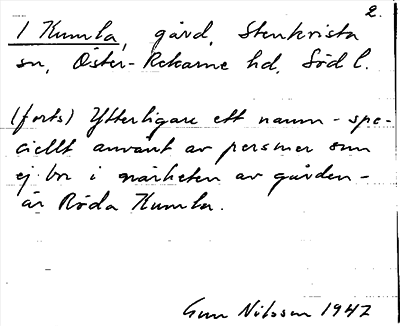 2.
1 Kumla, gård, Stenkvista
sn, Öster-Rekarne hd, Söd l.
(forts) Ytterligare ett namn - spe-
ciellt använt av personer som
ej bor i närheten av gården -
är Röda Kumla.
Gun Nilsson 1947